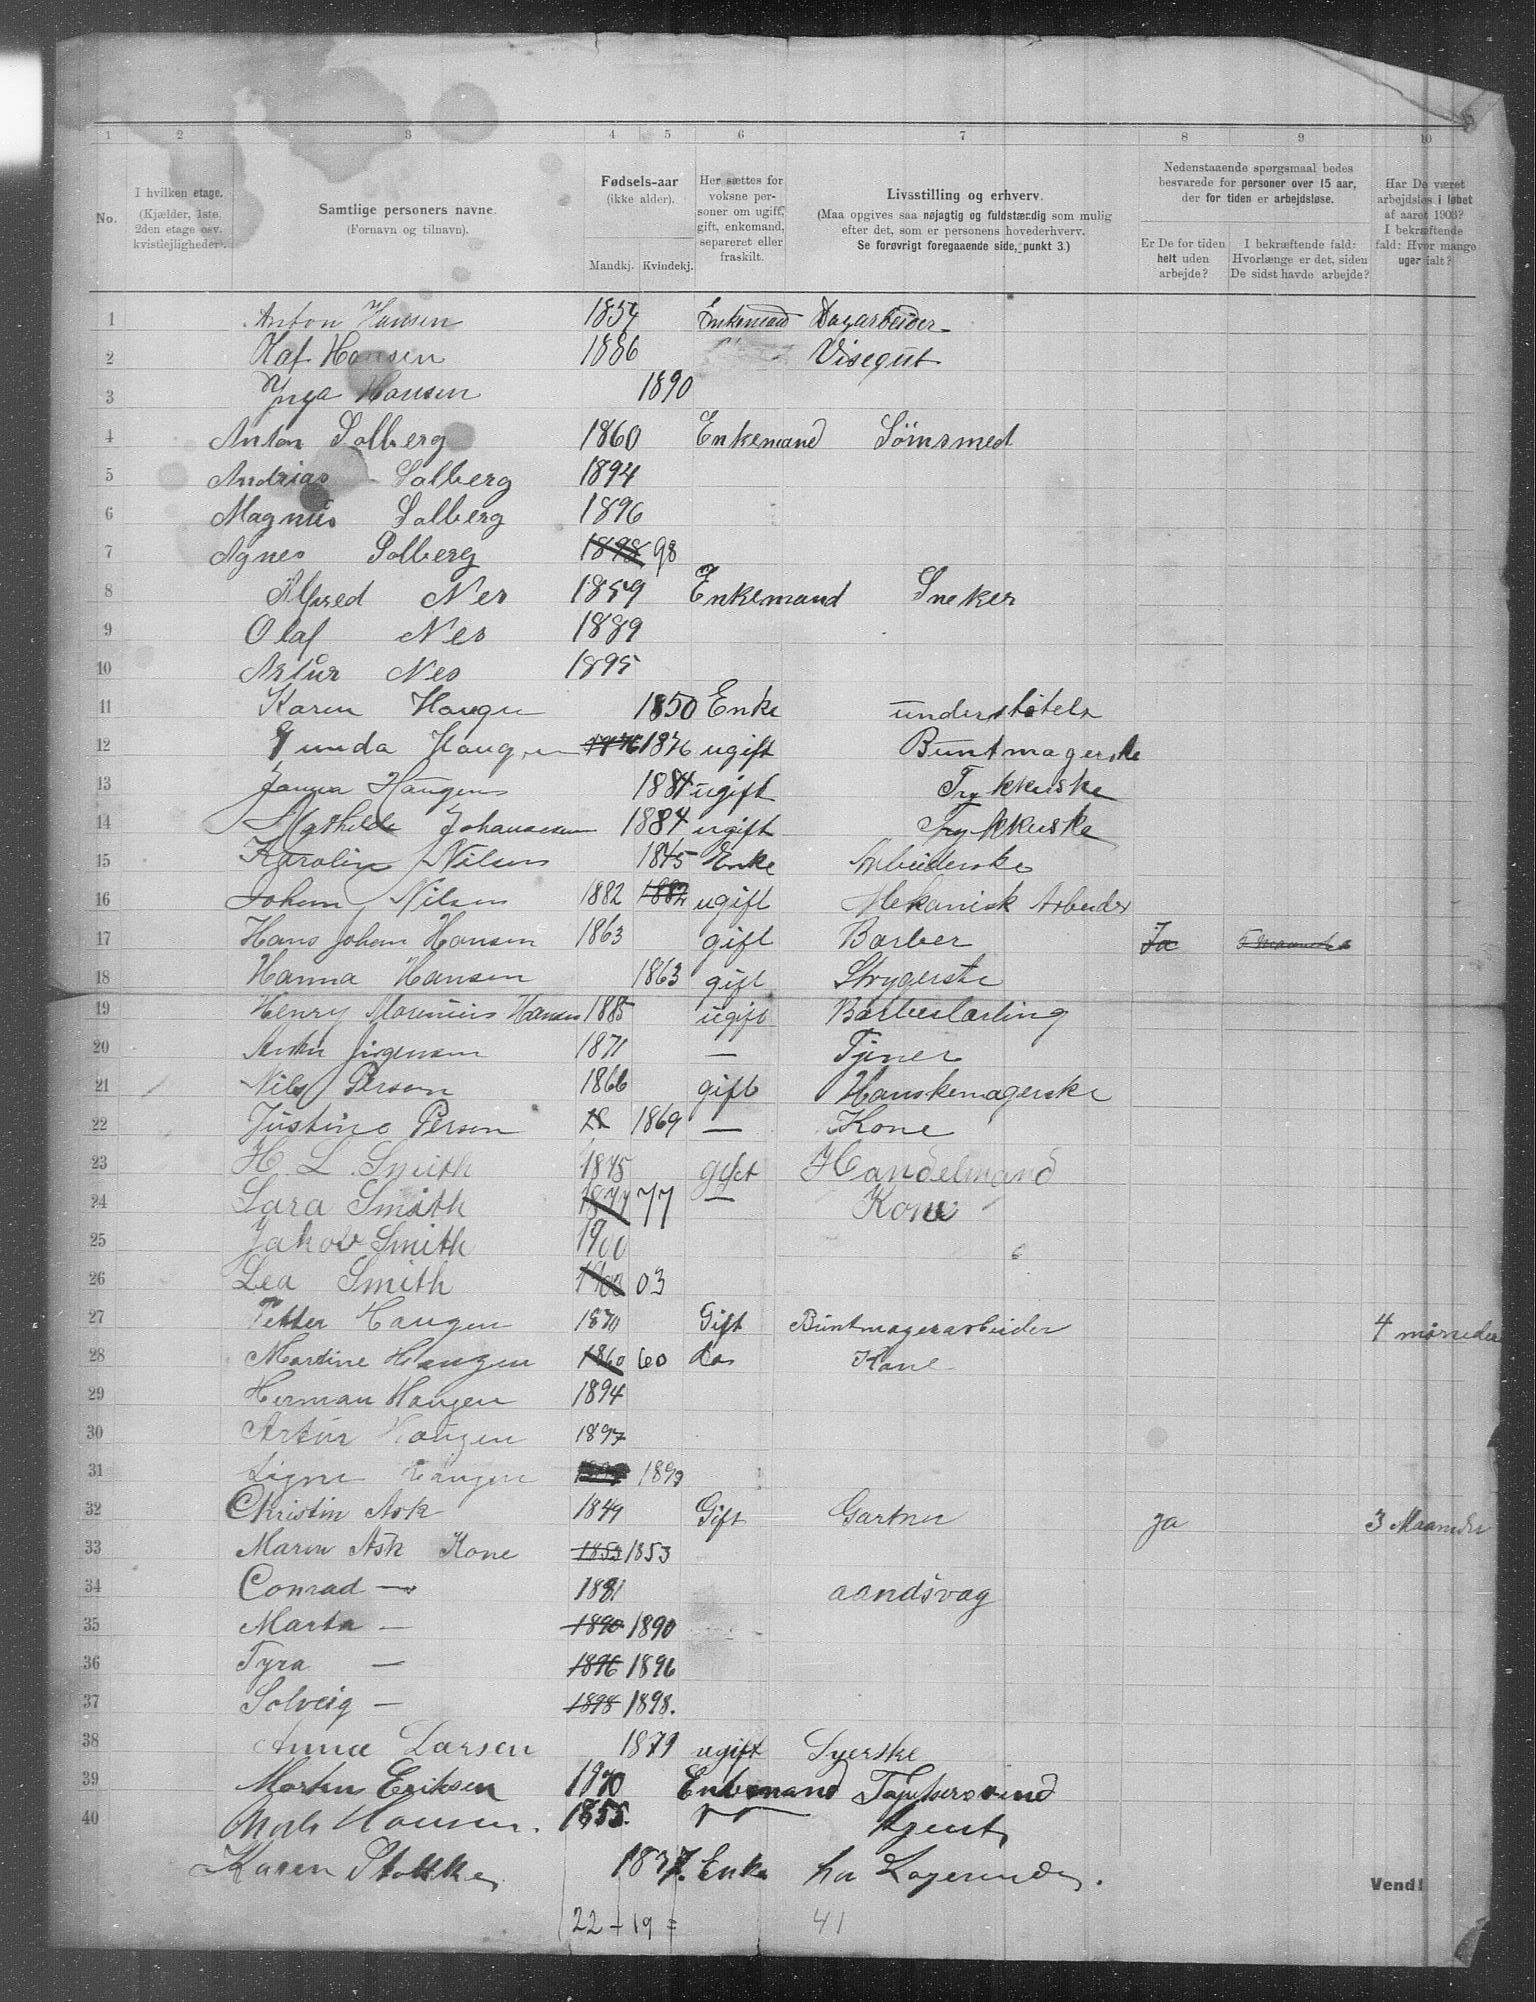 1 2 3 4 5 6 7 8 9 10
No.
I hvilken etage.
(Kjælder, 1ste, 2den etage osv. kvistlejligheder).
Samtlige personers navne.
(Fornavn og tilnavn).
Fødsels-aar
(ikke alder).
Mandkj. Kvindekj.
Her sættes for voksne personer om ugift, gift, enkemand, separeret eller fraskilt.
Livsstilling og erhverv.
(Maa opgives saa nøjagtig og fuldstændig som mulig
efter det, som er personens hovederhverv.
Se forøvrigt foregaaende side, punkt 3.)
Nedenstaaende spørgsmaal bedes
besvarede for personer over 15 aar,
der for tiden er arbejdsløse.
Er De for tiden helt uden arbejde?
I bekræftende fald:
Hvorlænge er det, siden
De sidst havde arbejde?
Har De været
arbejdsløs i løbet
af aaret 1903?
I bekræftende
fald: Hvor mange
uger ialt?
1 Anton Hansen 1854 Enkemand Dagarbeider
2 Olaf Hansen 1886 Visegut
3 Ynga Hansen 1890
4 Anton Solberg 1860 Enkemand Sømsmed
5 Andrias Solberg 1894
6 Magnus Solberg 1896
7 Agnes Solberg 1898 98
8 Alfred Nes 1859 Enkemand Sneker
9 Olaf Nes 1889
10 Artur Nes 1895
11 Karen Haugen 1850 Enke understøtels
12 Gunda Haugen 1876 1876 ugift Buntmagerske
13 Haugen 1884 ugift Trykkerske
14 Mathilde Johannesen 1884 ugift Trykkerske
15 Karolin Nilsen 1845 Enke Arbeiderske
16 Johan Nilsen 1882 1882 ugift Mekanisk Arbeider
17 Hans Johan Hansen 1863 gift Barber Ja
18 Hanna Hansen 1863 gift Strygerske
19 Henry Marenius Hansen 1885 ugift Barberlærling
20 Jørgensen 1871 — Tjener
21 Nils Person 1866 gift Hanskemagerske
22 Justine Person 18 1869 — Kone
23 H. L. Smith 1845 gift Handelmand
24 Sara Smith 1877 77 — Kone
25 Jakob Smith 1900
26 Lea Smith 1903 03
27 Petter Haugen 1870 Gift Buntmagerarbeider 4 mørneder
28 Martine Haugen 1860 60 do Kone
29 Herman Haugen 1894
30 Artur Haugen 1897
31 Signe Haugen 1899
32 Christin Ask 1849 Gift Gartner Ja 3 Maaneder
33 Maren Ask Kone 1853 1853
34 Conrad — 1881 aandsvag
35 Marta — 1890 1890
36 Tyra — 1896 1896
37 Solveig — 1898 1898.
38 Anna Larsen 1879 ugift Syerske
39 Morten Eriksen 1870 Enkemand Tappersvend
40 Hansen. 1855. Agent
Karen 1837. Enke
Vend!
22 + 19 = 41